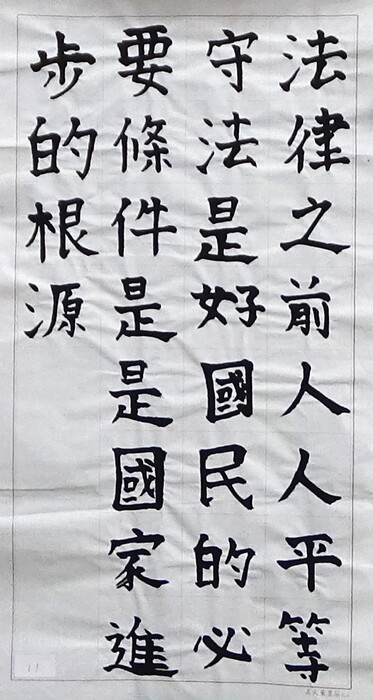 法律之前人人平等
守法是好國民的必
要條件是是國家進
步的根源
11